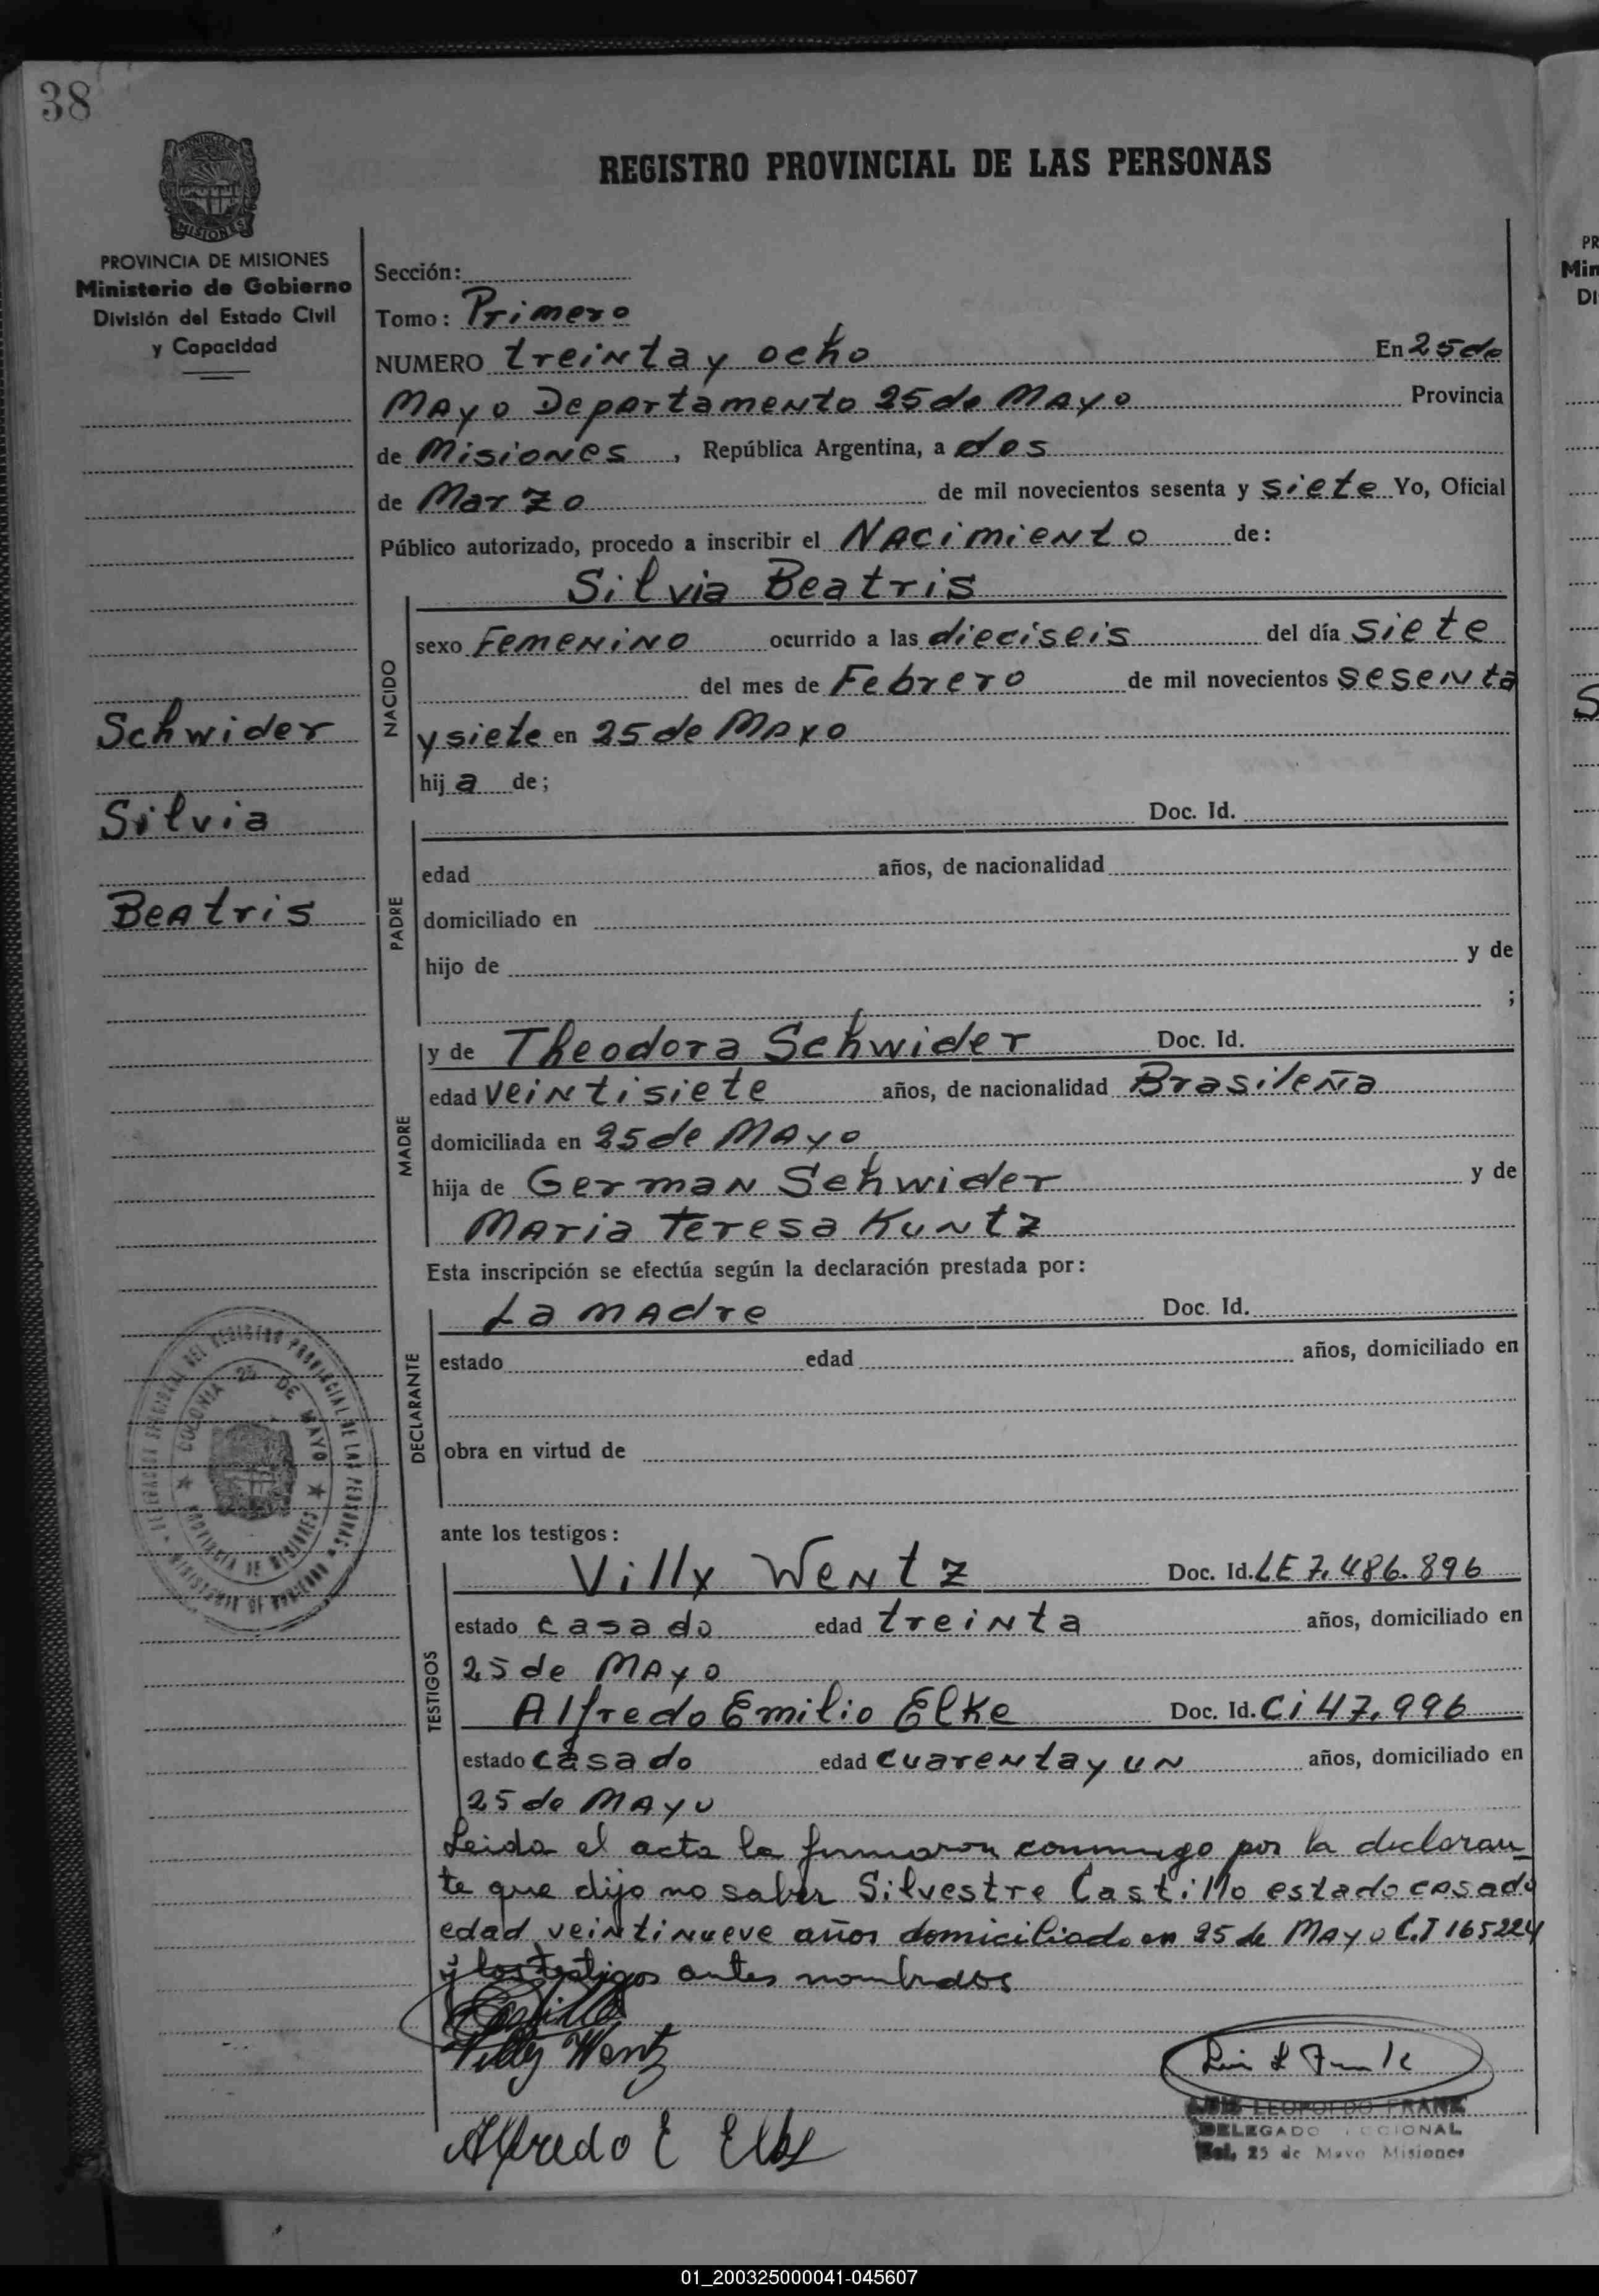 38
REGISTRO PROVINCIAL DE LAS PERSONAS
MISIONES
PROVINCIA DE MISIONES
Ministerio de Gobierno
División del Estado Civil
y Capacidad
Sección:
Tomo: Primero
NUMERO treinta y ocho En 25 de
Mayo Departamento 25 de Mayo Provincia
de Misiones, República Argentina, a dos
de Marzo de mil novecientos sesenta y siete Yo, Oficial
Público autorizado, procedo a inscribir el Nacimiento de:
Silvia Beatris
NACIDO
sexo Femenino ocurrido a las dieciseis del día siete
del mes de Febrero de mil novecientos sesenta
y siete en 25 de Mayo
hija de;
Schwider
Silvia
Beatris
PADRE
Doc. Id.
edad años, de nacionalidad
domiciliado en
hijo de y de
;
MADRE
y de Theodora Schwider Doc. Id.
edad veintisiete años, de nacionalidad Brasileña
domiciliada en 25 de Mayo
hija de German Schwider y de
Maria Teresa Kuntz
Esta inscripción se efectúa según la declaración prestada por:
DECLARANTE
La madre Doc. Id.
estado edad años, domiciliado en
obra en virtud de
COLONIA 25 DE MAYO
PROVINCIA DE MISIONES
ante los testigos:
TESTIGOS
Villy Wentz Doc. Id. LE 7.486.896
estado casado edad treinta años, domiciliado en
25 de Mayo
Alfredo Emilio Elke Doc. Id. Ci 47.996
estado casado edad cuarenta y un años, domiciliado en
25 de Mayo
Leida el acta la firmaron conmigo por la declaran_
te que dijo no saber Silvestre Castillo estado casado
edad veintinueve años domiciliado en 25 de Mayo C.I 165224
y los testigos antes nombrados
Castillo
Villy Wentz
Alfredo E Elke
LUIS LEOPOLDO FRANK
DELEGADO
Col. 25 de Mayo Misiones
01_200325000041-045607